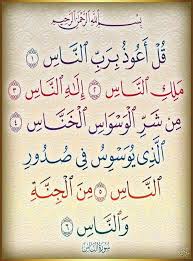 بِسْمِ ٱللَّهِ ٱلرَّحْمَٰنِ ٱلرَّحِيمِ
قُلْ أَعُوذُ بِرَبِّ ٱلنَّاسِ ١
مَلِكِ ٱلنَّاسِ ٢ إِلَٰهِ ٱلنَّاسِ ٣
مِن شَرِّ ٱلْوَسْوَاسِ ٱلْخَنَّاسِ ٤
ٱلَّذِى يُوَسْوِسُ فِى صُدُورِ
ٱلنَّاسِ ٥ مِنَ ٱلْجِنَّةِ
وَٱلنَّاسِ ٦
سورة الناس